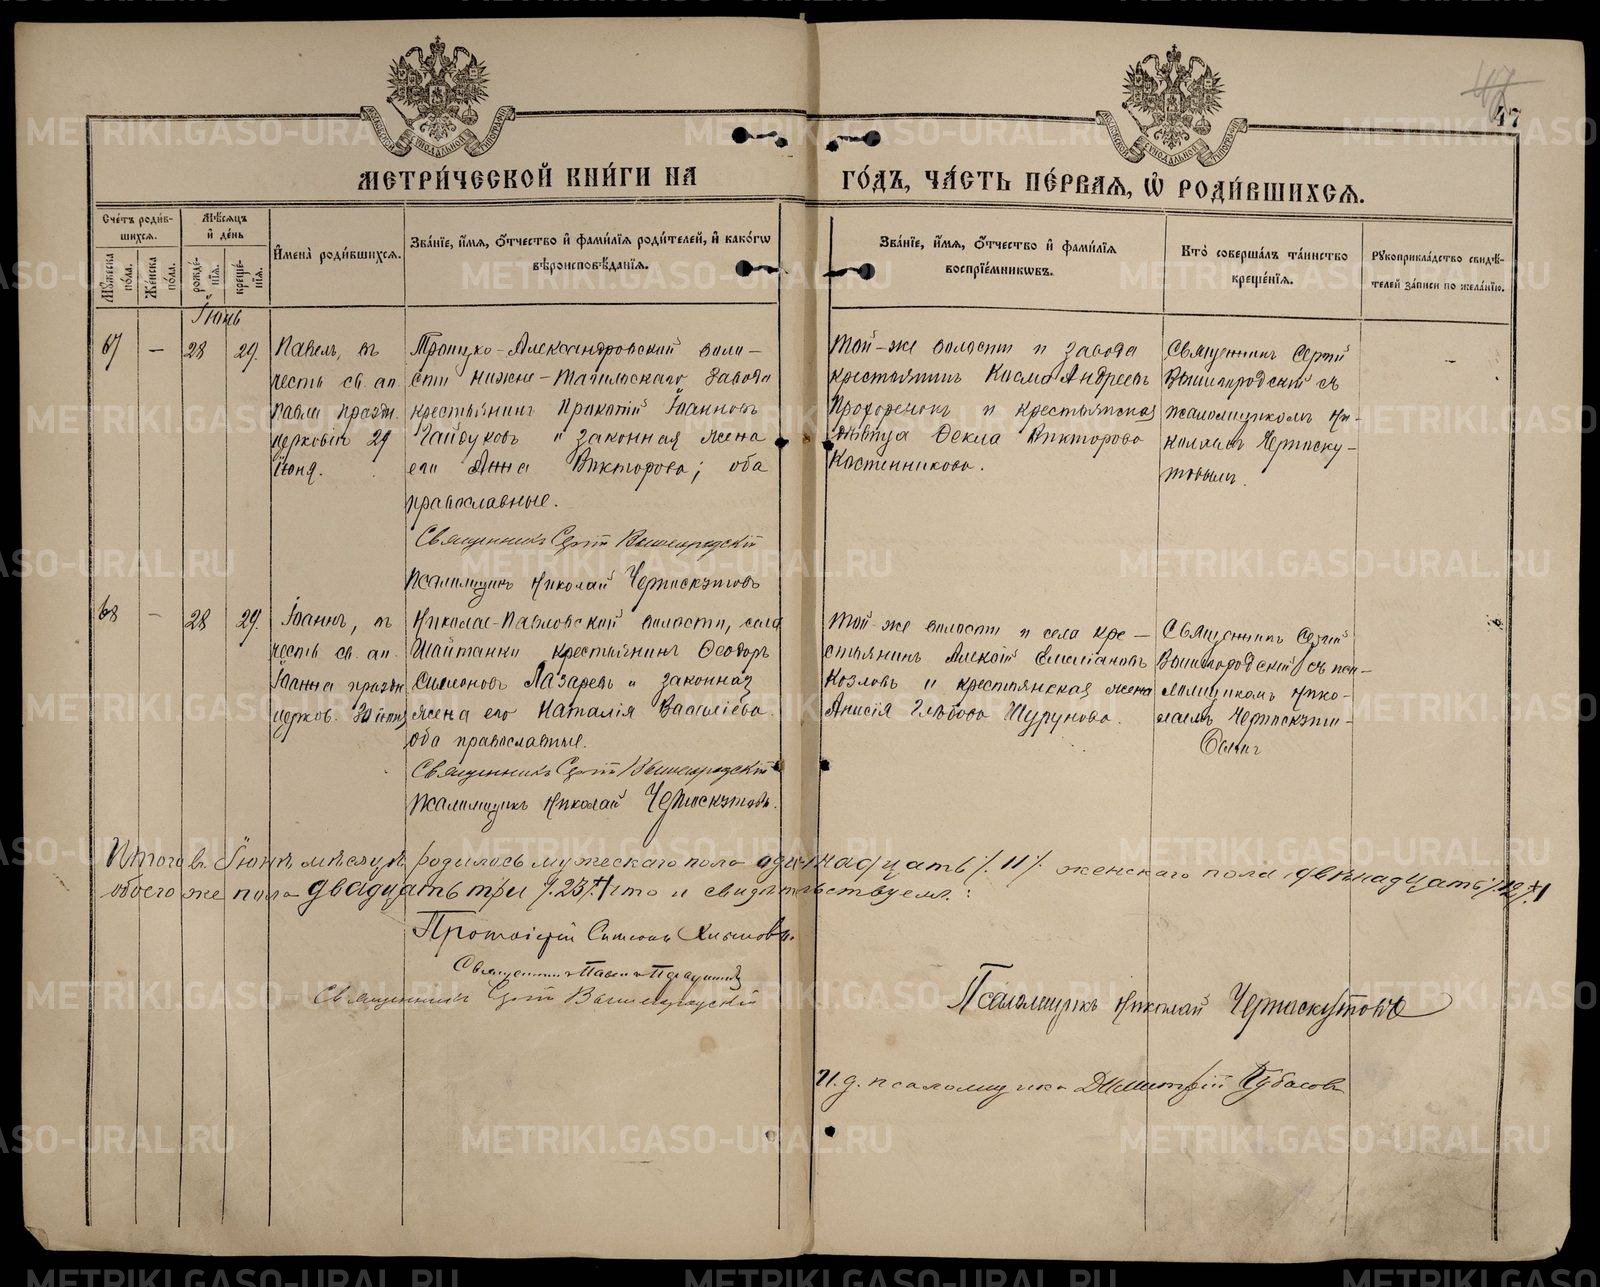 47
47
МЕТРИ́ЧЕСКОЙ КНИ́ГИ НА
ГО́ДЪ, ЧА́СТЬ ПЕ́РВАЯ, Ѡ҆ РОДИ́ВШИХСЯ.
Сче́тъ роди́в-
шихся.
Мѣ́сяцъ
и҆ де́нь
Мꙋ́жеска
по́ла.
Же́нска
по́ла.
рожде́-
нїя.
креще́-
нїя.
И҆мена̀ роди́вшихся.
Зва́нїе, и҆́мя, ѻ҆́тчество и҆ фами́лїя роди́телей, и҆ како́гѡ
вѣроисповѣ́данїя.
Зва́нїе, и҆́мя, ѻ҆́тчество и҆ фами́лїя
воспрїе́мникѡвъ.
Кто̀ соверша́лъ та́инство
креще́нїя.
Рꙋкоприкла́дство свидѣ́-
телей за́писи по жела́нїю.
Іюнь
67 — 28 29.
Павелъ, въ
честь св. ап.
Павла празн.
церковію 29
Іюня.
Троицко-Александровской воло-
сти Нижне-Тагильскаго завода
крестьянинъ Прокопій Іоанновъ
Гайдуковъ и законная жена
его Анна Викторова; оба
православные.
Священникъ Сергій Вышегородскій
Псаломщикъ Николай Черноскутовъ
Той-же волости и завода
крестьянинъ Косма Андреевъ
и крестьянская
дѣвица Ѳекла Викторова
Костенникова.
Священникъ Сергій
Вышегородскій съ
псаломщикомъ Ни-
колаемъ Черноску-
товымъ.
68 — 28 29.
Іоаннъ, въ
честь св. ап.
Іоанна празн.
церков. 30 іюня
Николае-Павловской волости, села
Шайтанки крестьянинъ Ѳеодоръ
Симеоновъ Лазаревъ и законная
жена его Наталія Васильева.
оба православные.
Священникъ Сергій Вышегородскій
Псаломщикъ Николай Черноскутовъ.
Той-же волости и села кре-
стьянинъ Алексій Емельяновъ
Козловъ и крестьянская жена
Анисія Глѣбова Шурунова.
Священникъ Сергій
Вышегородскій съ пса-
ломщикомъ Нико-
лаемъ Черноскуто-
вымъ
Итого въ Іюнѣ мѣсяцѣ родилось мужескаго пола одиннадцать /.11/. женскаго пола двѣнадцать /.12/.
обоего же пола двадцать три /.23/. что и свидѣтельствуемъ:
Протоіерей Симеонъ
Священникъ Павелъ
Священникъ Сергій Вышегородскій
Псаломщикъ Николай Черноскутовъ
И. д. псаломщика Димитрій Кубасовъ
METRIKI.GASO-URAL.RU